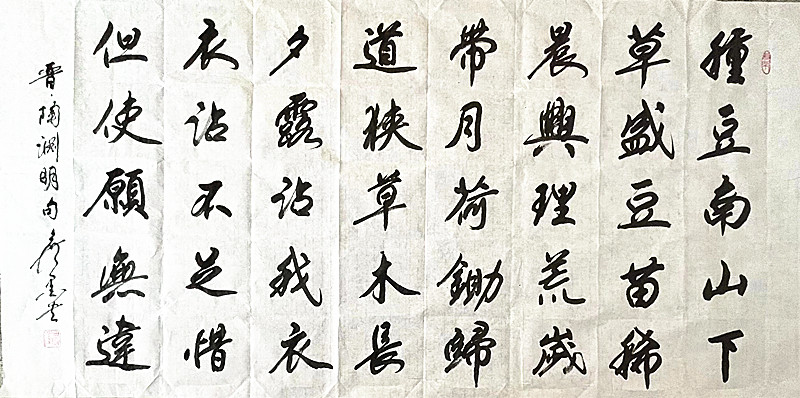 種豆南山下
草盛豆苗稀
晨興理荒歲
帶月荷鋤歸
道狹草木長
夕露沾我衣
衣沾不足惜
但使願無違
晋·陶淵明句